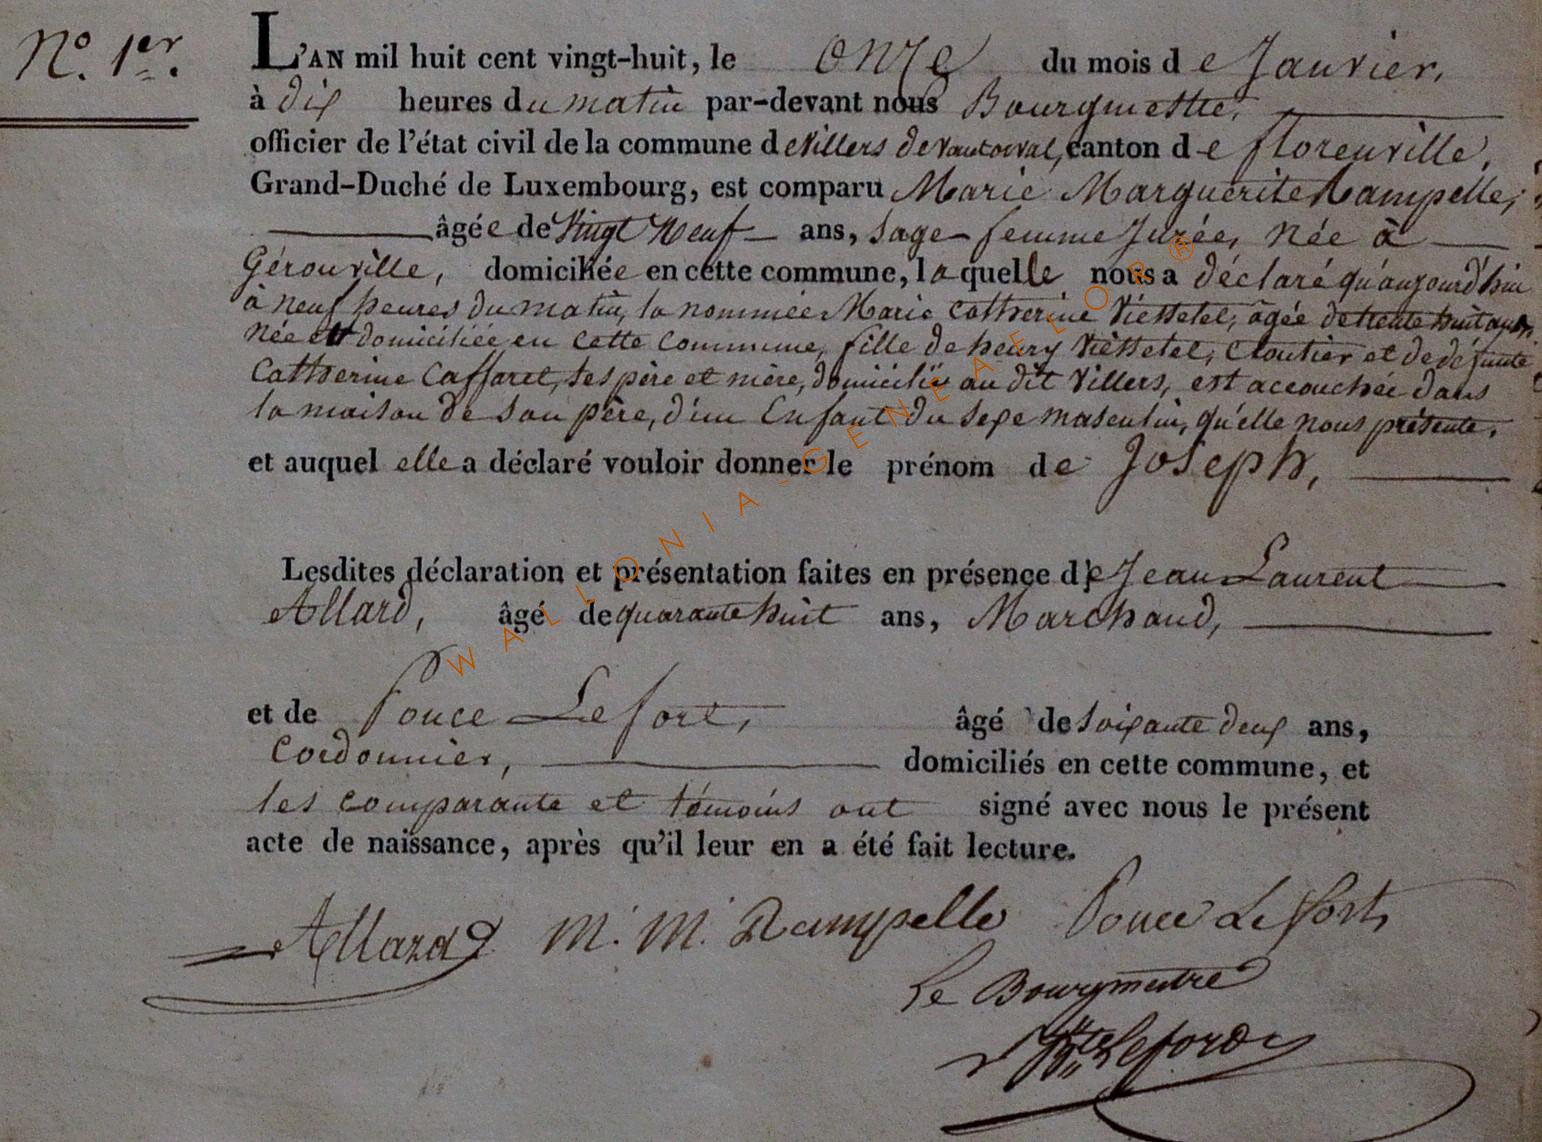 N.o 1.er
L'AN mil huit cent vingt-huit, le onze du mois de Janvier,
à dix heures du matin par-devant nous Bourgmestre,
officier de l'état civil de la commune de Villers devant orval, canton de florenville,
Grand-Duché de Luxembourg, est comparu Marie Marguerite Rampelle,
âgée de Vingt Neuf ans, sage-femme Jurée, née à
Gérouville, domiciliée en cette commune, laquelle nous a déclaré qu'aujourd'hui
à neuf heures du matin, la nommée Marie Catherine Viesselet, âgée de trente huit ans,
née et domiciliée en cette commune, fille de henry Viesselet, Cloutier et de défunte
Catherine Caffaret, ses père et mère, domiciliés au dit Villers, est accouchée dans
la maison de son père, d'un Enfant du sexe masculin, qu'elle nous présente,
et auquel elle a déclaré vouloir donner le prénom de Joseph,
Lesdites déclaration et présentation faites en présence de Jean Laurent
Allard, âgé de quarante huit ans, Marchand,
et de Ponce Lefort, âgé de soixante deux ans,
Cordonnier, domiciliés en cette commune, et
les comparante et témoins ont signé avec nous le présent
acte de naissance, après qu'il leur en a été fait lecture.
Allard M. M. Rampelle Ponce Lefort
Le Bourgmestre
WALLONIA-GENEAFLOR®